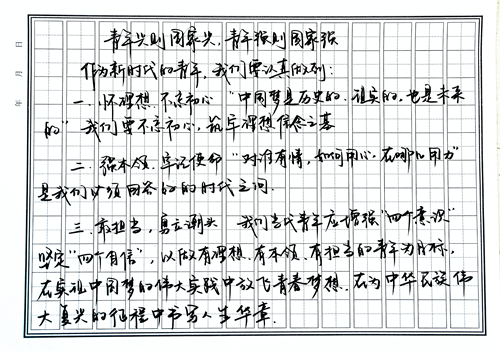 青年兴则国家兴，青年强则国家强
作为新时代的青年，我们要认真做到：
一、怀理想，不忘初心 “中国梦是历史的、现实的，也是未来
的”我们要不忘初心，筑牢理想信念之基
二、强本领，牢记使命 “对谁有情，如何用心，在哪儿用力”
是我们必须回答好的时代之问
三、敢担当，勇立潮头 我们当代青年应增强“四个意识”
坚定“四个自信”，以做有理想、有本领、有担当的青年为目标，
在实现中国梦的伟大实践中放飞青春梦想，在为中华民族伟
大复兴的征程中书写人生华章.
年 月 日